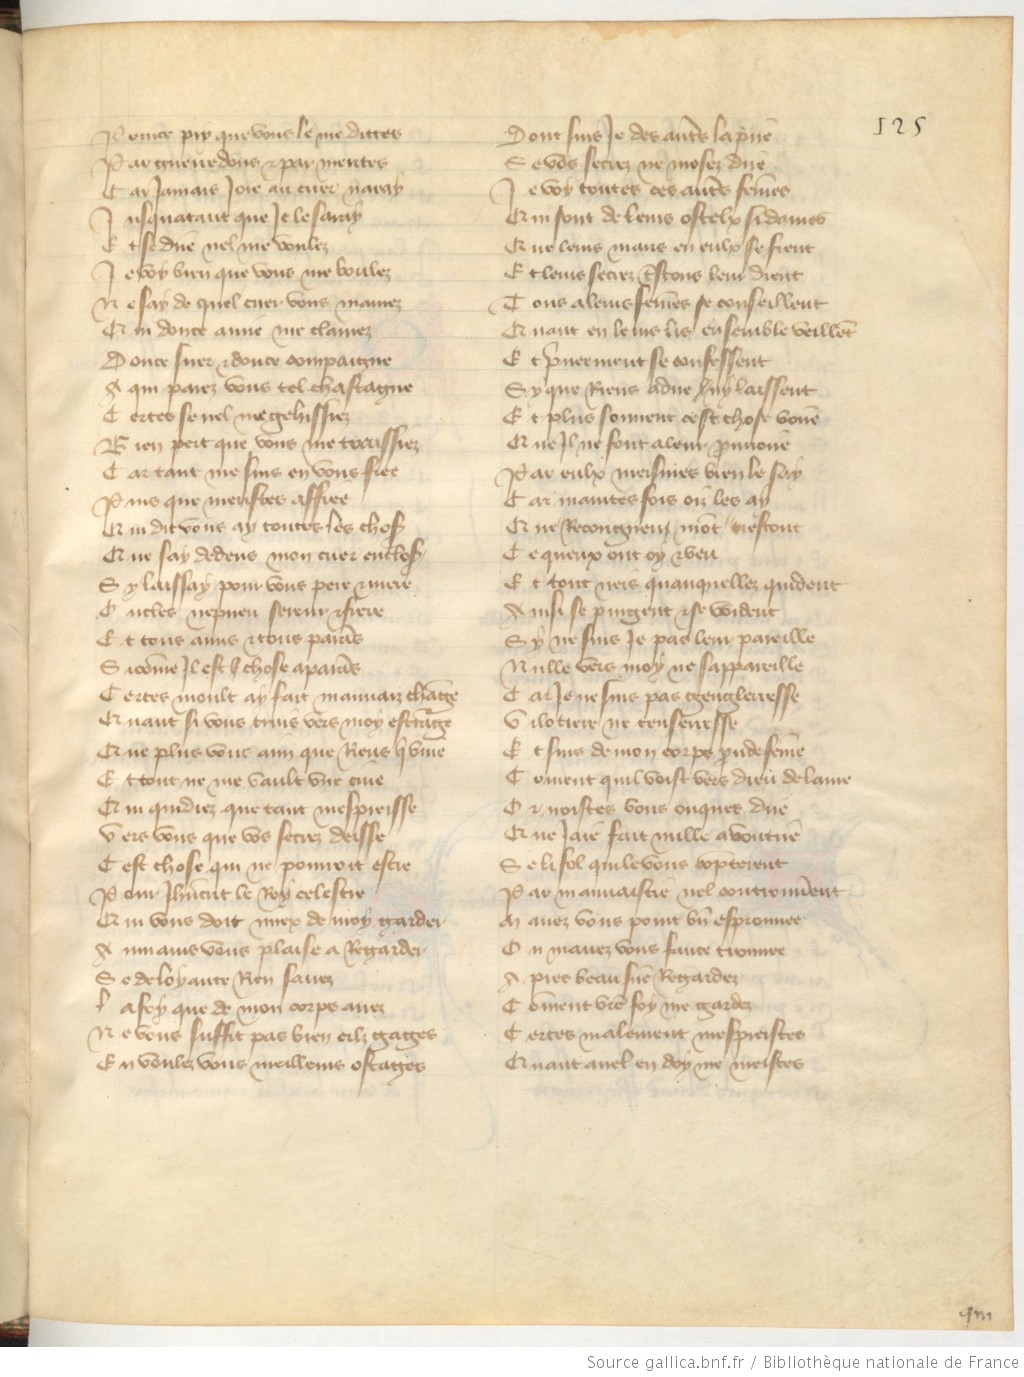 125
P our ce pry que vous le me dittes
P ar guerredons et par merites
C ar Jamais Joie au cuer naray
J usquatant que Je le saray
E t se dire nel me voulez
J e voy bien que vous me boulez
N e say de quel cuer vous mamez
Q ui douce amie me clamez
D ouce suer et douce compaigne
A qui parez vous tel chastaigne
C ertes se nel me gehissiez
B ien pert que vous me traissiez
C ar tant me suis en vous fiee
P uis que meustes affiee
Q ui dit vous ay toutes les choses
Q ue say dedens mon cuer encloses
S y laissay pour vous pere et mere
O ncles nepueu sereur et frere
E t tous amis et tous parens
S icome Il est chose aparens
C ertes moult ay fait mauvaiz change
Q uant si vous truis vers moy estrange
Q ue plus vous aim que Riens qui vive
E t tout ne me vault une cive
Q ui quidiez que tant mespreisse
V ers vous que vos secrez deisse
C est chose qui ne pourroit estre
P our Jhucrist le Roy celestre
Q ui vous doit miex de moy garder
A u mains vous plaise a Regarder
S e de loyaute Rien savez
L a foy que de mon corps avez
N e vous suffit pas bien cilz gages
E n voulez vous meilleurs ostages
D ont suis Je des autres la pire
S e vos secrez ne mosez dire
J e voy toutes ces autres femes
Q ui sont de leurs ostelx si dames
Q ue leurs maris en eulx se fient
E t leurs secrez trestous leur dient
T ous a leurs femes se conseillent
Q uant en leurs lis ensemble veillent
E t priveement se confessent
S y que Riens a dire ny laissent
E t plus souvent cest chose voire
Q ue Il ne font a leur provoire
P ar eulx meismes bien le say
C ar maintes fois oiz les ay
Q ue Recongneu mont trestout
C e queux ont oy et veu
E t tout neis quanquellez quident
A insi se purgent et se vuident
S y ne suis Je pas leur pareille
N ulle vers moy ne sappareille
C ar Je ne suis pas gengleresse
V ilotiere ne tenseresse
E t suis de mon corps preudefeme
C oment quil voist vers dieu de lame
O r noistes vous onques dire
Q ue Jaie fait nulle avoutire
S e li fol qui le vous conpterent
P ar mauvaistie nel controuverent
M avez vous point bien esprouvee
O u mavez vous fausse trouvee
A pres beau sire Regardez
C oment vostre foy me gardez
C ertes malement mespreistes
Q uant anel en doy me meistes